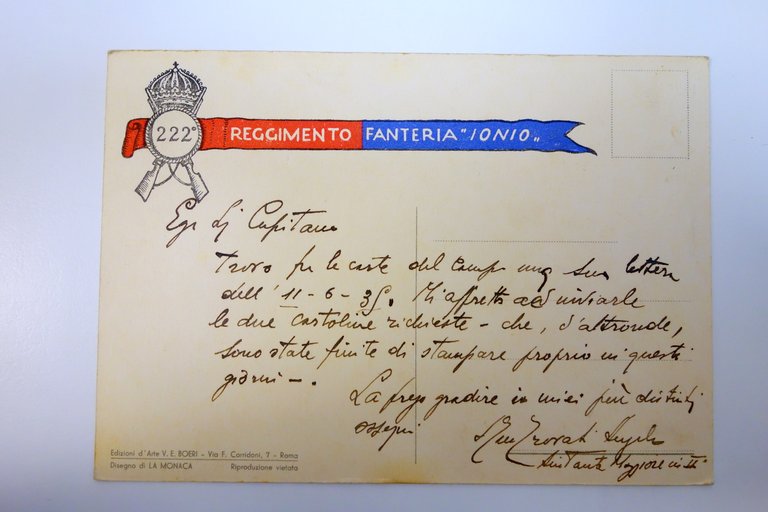 222°
REGGIMENTO FANTERIA "IONIO„
Egr Sig Capitano
Trovo fra le carte del Campo una sua lettera
dell' 11-6-35. Mi affretto ad inviarle
le due cartoline richieste - che, d'altronde,
sono state finite di stampare proprio in questi
giorni -.
La prego gradire i miei più distinti
ossequi
Aiutante Maggiore in
Edizioni d'Arte V. E. BOERI - Via F. Corridoni, 7 - Roma
Disegno di LA MONACA Riproduzione vietata